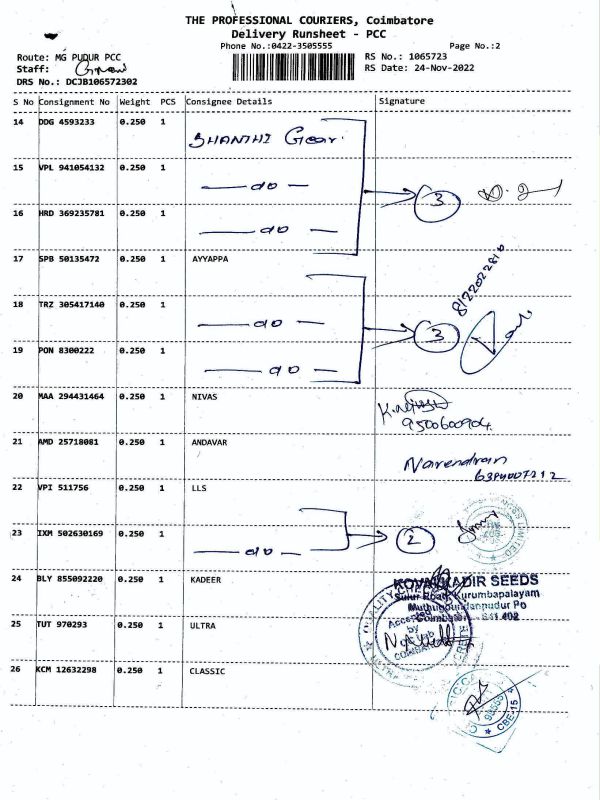 THE PROFESSIONAL COURIERS, Coimbatore
Delivery Runsheet - PCC
Phone No.:0422-3505555 Page No.:2
Route: MG PUDUR PCC RS No.: 1065723
Staff: RS Date: 24-Nov-2022
DRS No.: DCJB106572302
S No Consignment No Weight PCS Consignee Details Signature
14 DDG 4593233 0.250 1 SHANTHI Gear.
15 VPL 941054132 0.250 1 — do — 3
16 HRD 369235781 0.250 1 — do —
17 SPB 50135472 0.250 1 AYYAPPA
8122022816
18 TRZ 305417140 0.250 1 — do — 3
19 PON 8300222 0.250 1 — do —
20 MAA 294431464 0.250 1 NIVAS
9500600904.
21 AMD 25718081 0.250 1 ANDAVAR Narendran
22 VPI 511756 0.250 1 LLS
23 IXM 502630169 0.250 1 — do — 2
24 BLY 855092220 0.250 1 KADEER KOVAI KADIR SEEDS
Sulur Road, Kurumbapalayam
Muthugoundenpudur Po
Coimbatore - 641 402
25 TUT 970293 0.250 1 ULTRA
26 KCM 12632298 0.250 1 CLASSIC
CBE-15